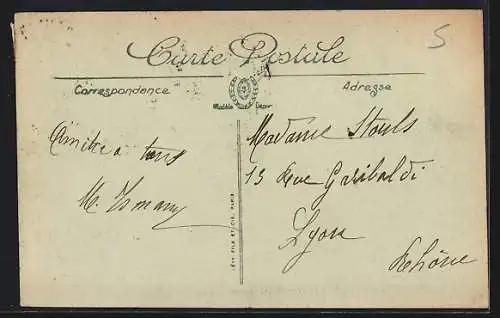 Carte Postale
5
Correspondance
Adresse
Modèle Déposé
Amitié a tous
M.
Madame
13 Rue Garibaldi
Lyon
Rhône
LÉVY FILS ET CIE, PARIS